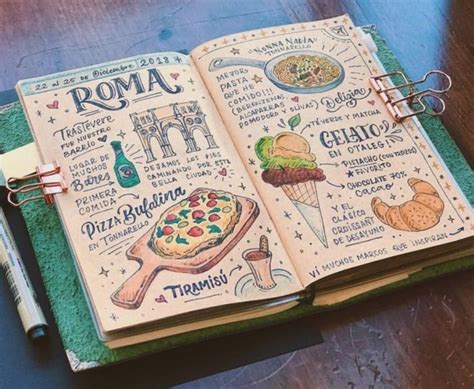 22 al 25 de Diciembre
2018
ROMA
TRASTÉVERE
FUE NUESTRO
BARRIO
LUGAR DE
MUCHOS
Bares
PRIMERA
COMIDA
DEJAMOS LOS PIES
CAMINANDO POR ESTA
BELLA
CIUDAD
PIZZA Bufalina
EN TONNARELLO
TIRAMISÚ
NONNA NADIA
TONNARELLO
MEJOR
PASTA
QUE HE
COMIDO!!!
(BERENJENAS,
ALCAPARRAS
POMODORO Y OLIVAS)
Delizia
TÉ VERDE Y MATCHA
GELATO
EN OTALEG!
PISTACHO (MI FAVORITO)
CHOCOLATE 70%
CACAO
Y EL
CLÁSICO
CROISSANT
DE DESAYUNO
VÍ MUCHOS MARCOS QUE INSPIRAN